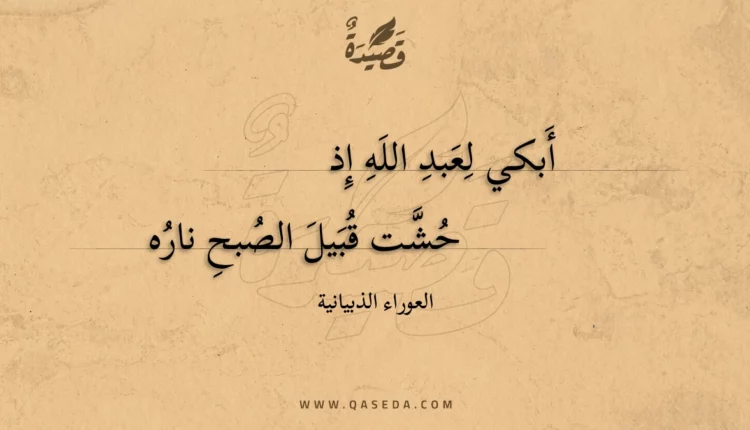 قَصِيدَةٌ
أَبكي لِعَبدِ اللَهِ إِذ
حُشَّت قُبَيلَ الصُبحِ نارُه
العوراء الذبيانية
WWW.QASEDA.COM